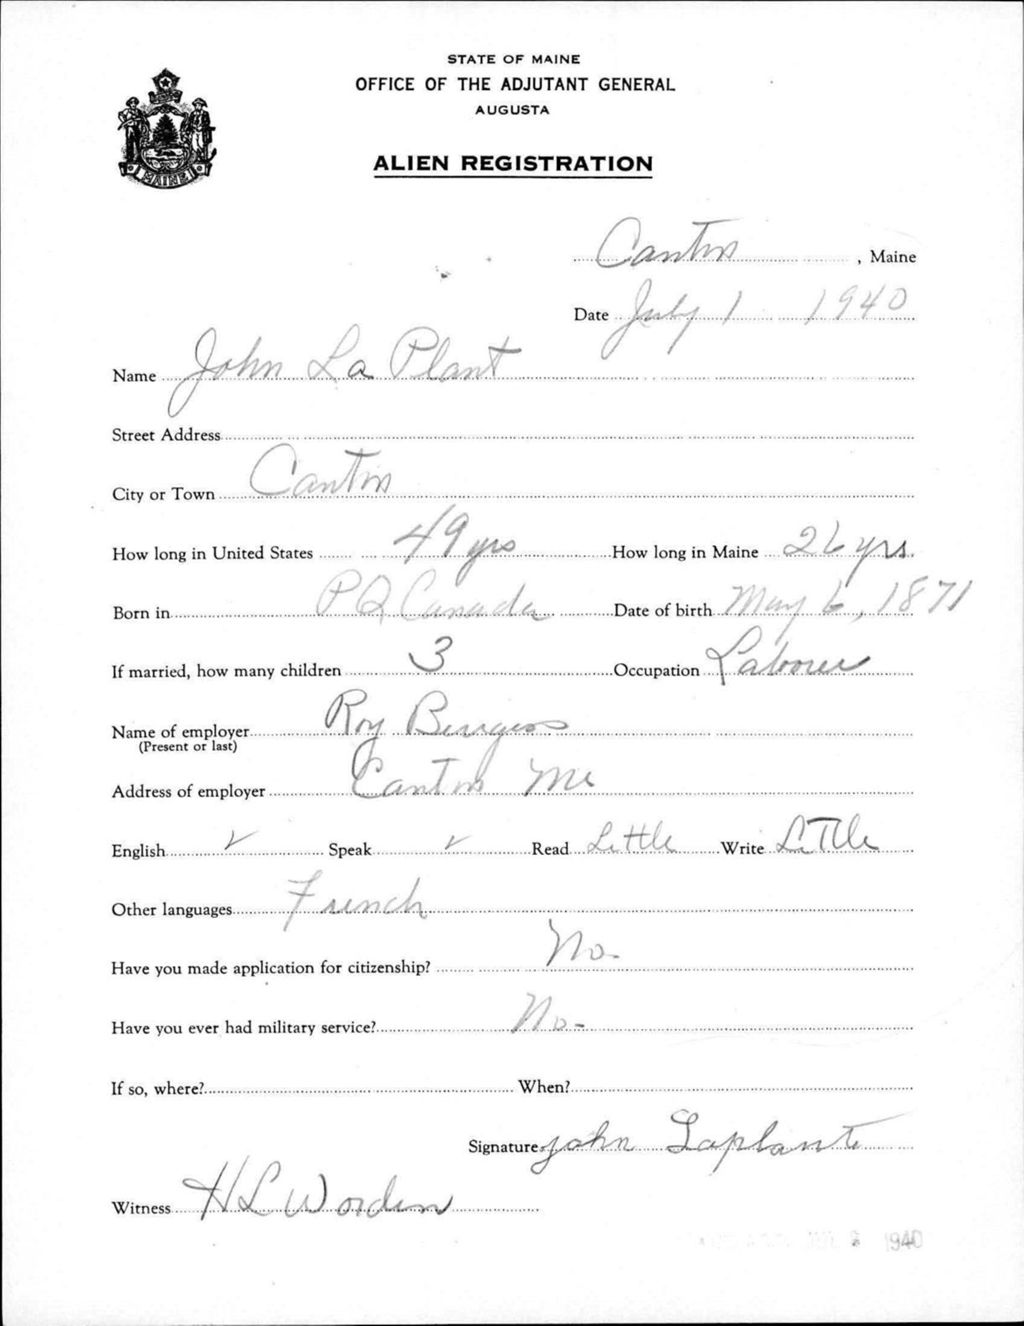 STATE OF MAINE
OFFICE OF THE ADJUTANT GENERAL
AUGUSTA
MAINE
ALIEN REGISTRATION
Canton, Maine
Date July 1 1940
Name John La Plant
Street Address
City or Town Canton
How long in United States 49 yrs How long in Maine 26 yrs.
Born in P Q Canada Date of birth May 6, 1871
If married, how many children 3 Occupation Laborer
Name of employer Roy Burgess
(Present or last)
Address of employer Canton Me
English ✓ Speak ✓ Read Little Write Little
Other languages French
Have you made application for citizenship? No-
Have you ever had military service? No-
If so, where? When?
Signature john Laplante
Witness H L Worden
1940